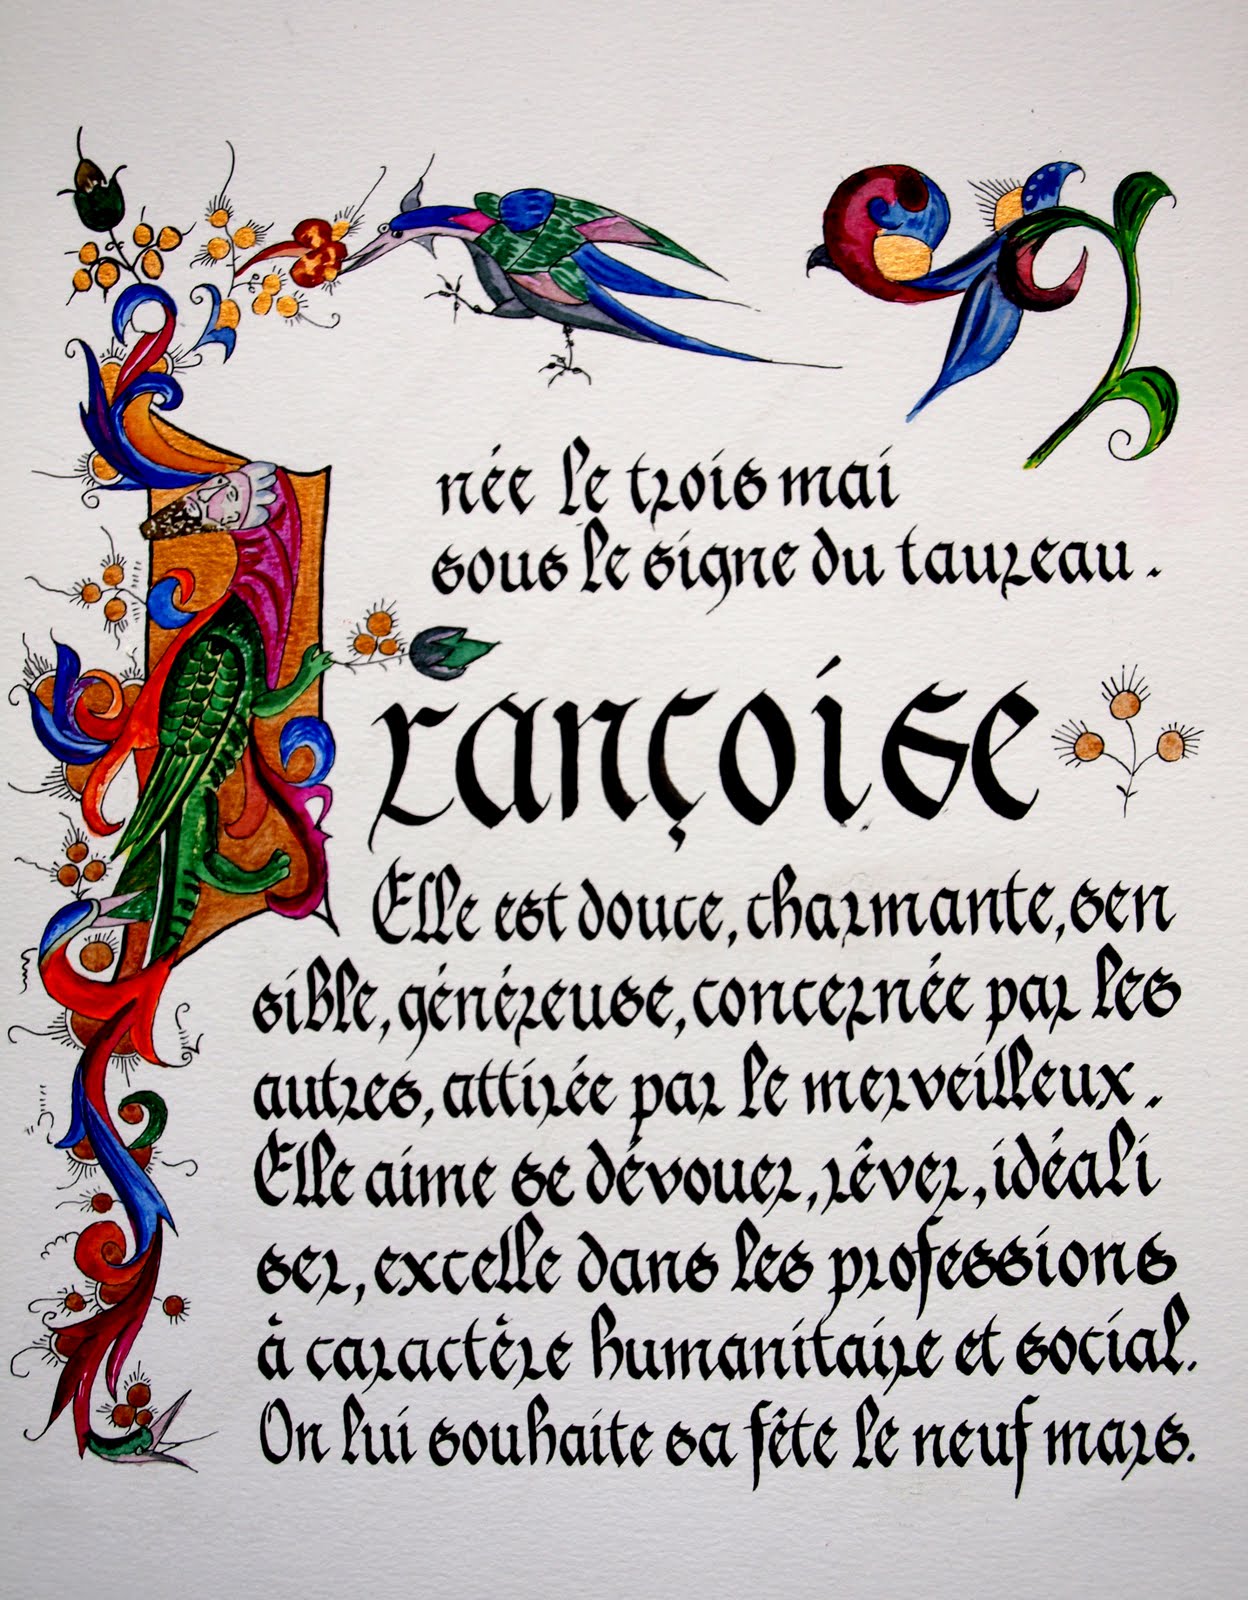 née le trois mai
sous le signe du taureau.
Françoise
Elle est douce, charmante, sen
sible, généreuse, concernée par les
autres, attirée par le merveilleux.
Elle aime se dévouer, rêver, idéali
ser, excelle dans les professions
à caractère humanitaire et social.
On lui souhaite sa fête le neuf mars.